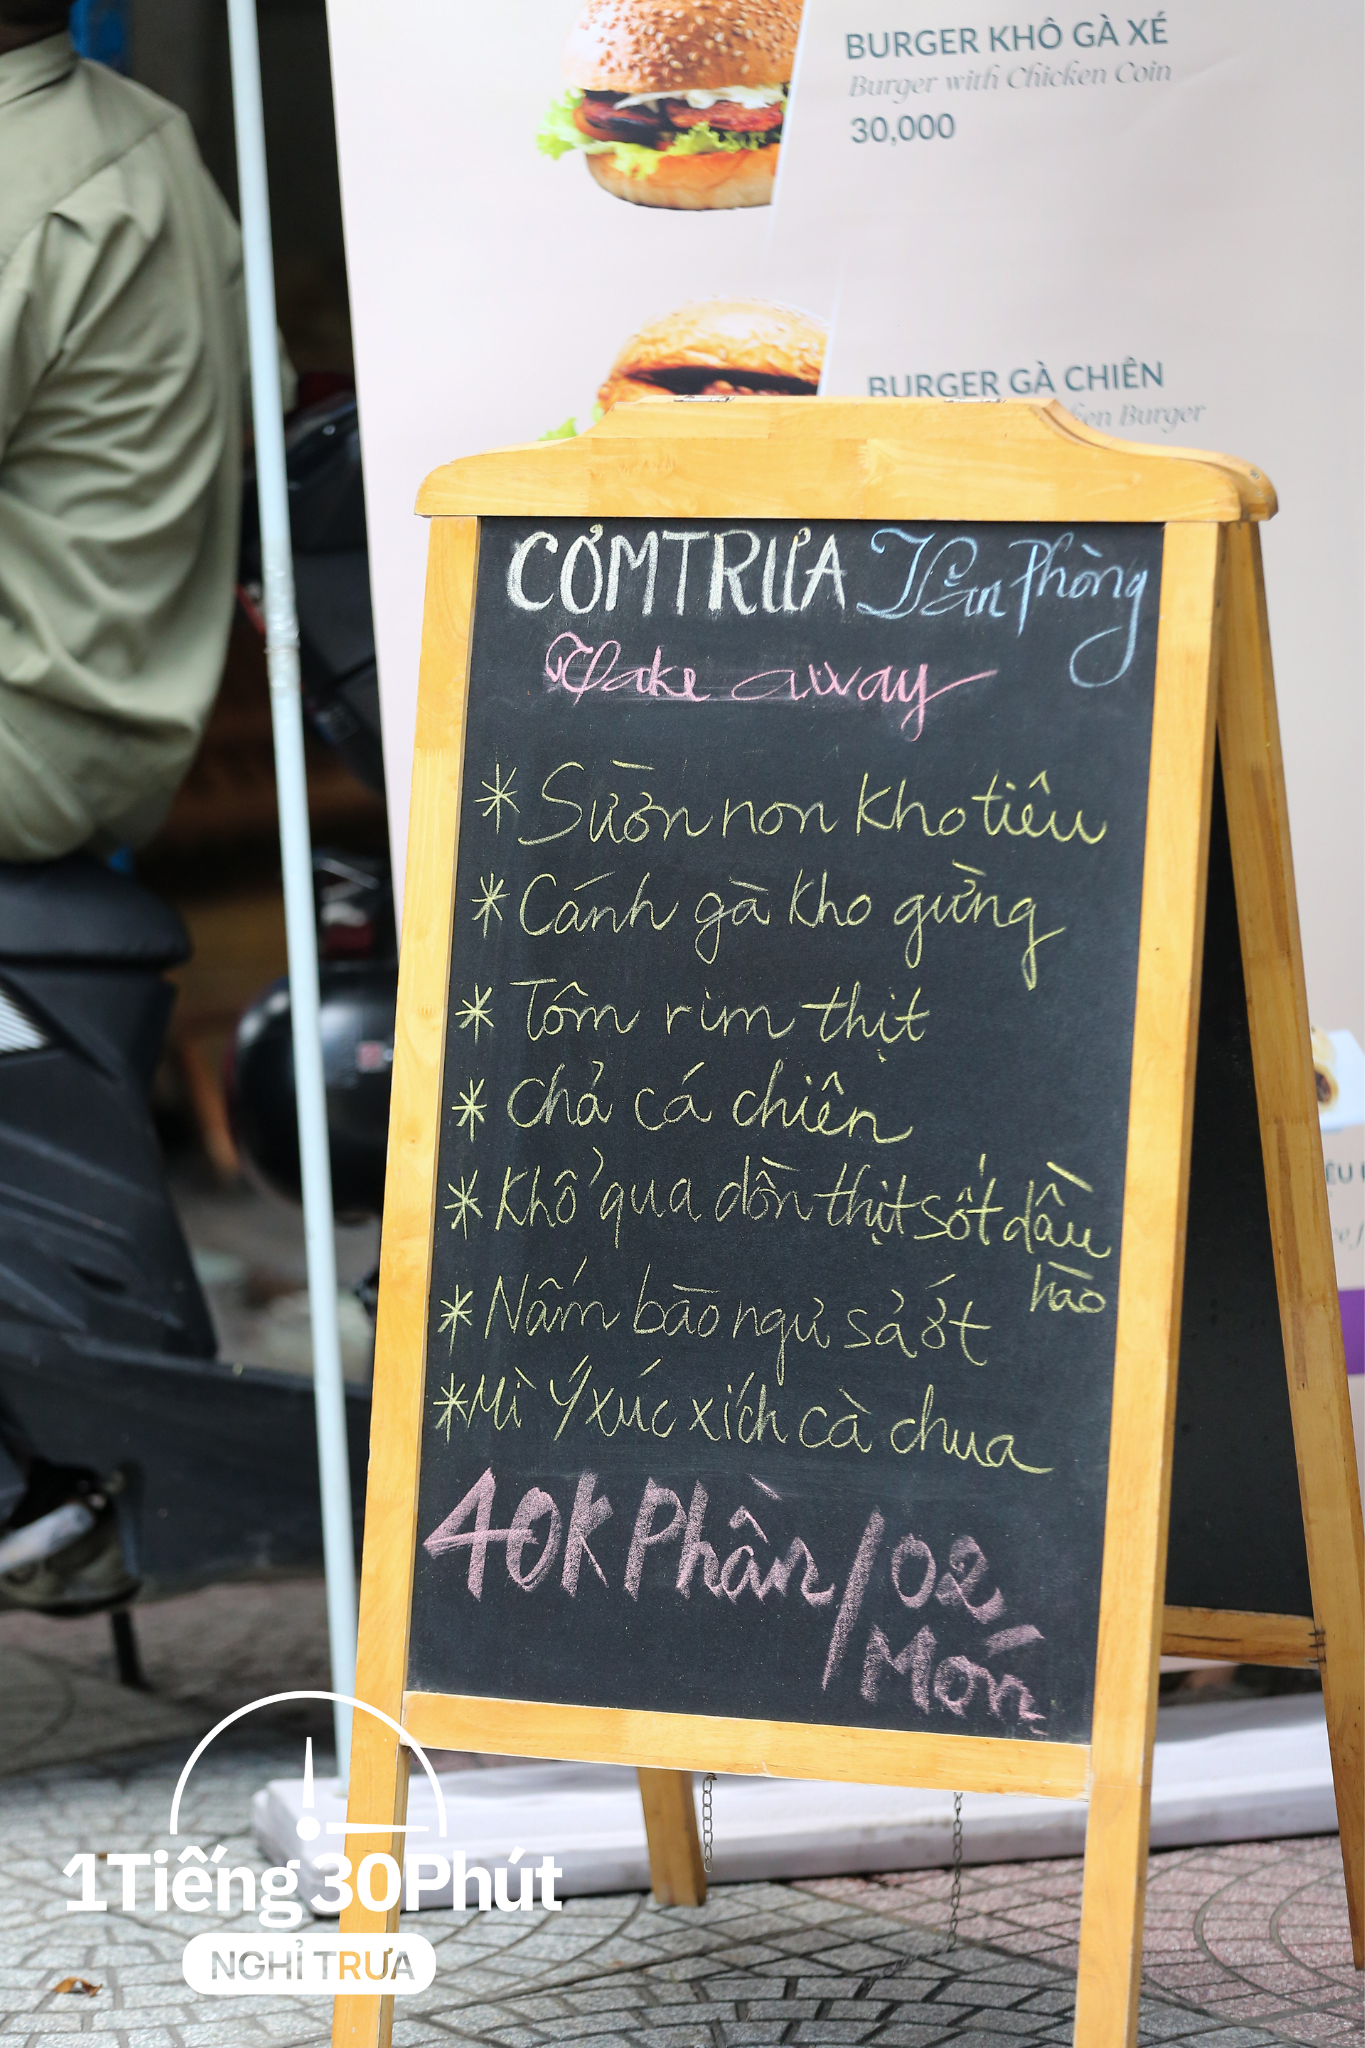 BURGER KHÔ GÀ XÉ
Burger with Chicken Coin
30,000
BURGER GÀ CHIÊN
Burger
CƠM TRƯA Văn Phòng
Take away
* Sườn non kho tiêu
* Cánh gà kho gừng
* Tôm rim thịt
* Chả cá chiên
* Khổ qua dồn thịt sốt dầu
hào
* Nấm bào ngư sả ớt
* Mì Ý xúc xích cà chua
40K Phần / 02
Món
1Tiếng 30Phút
NGHỈ TRƯA